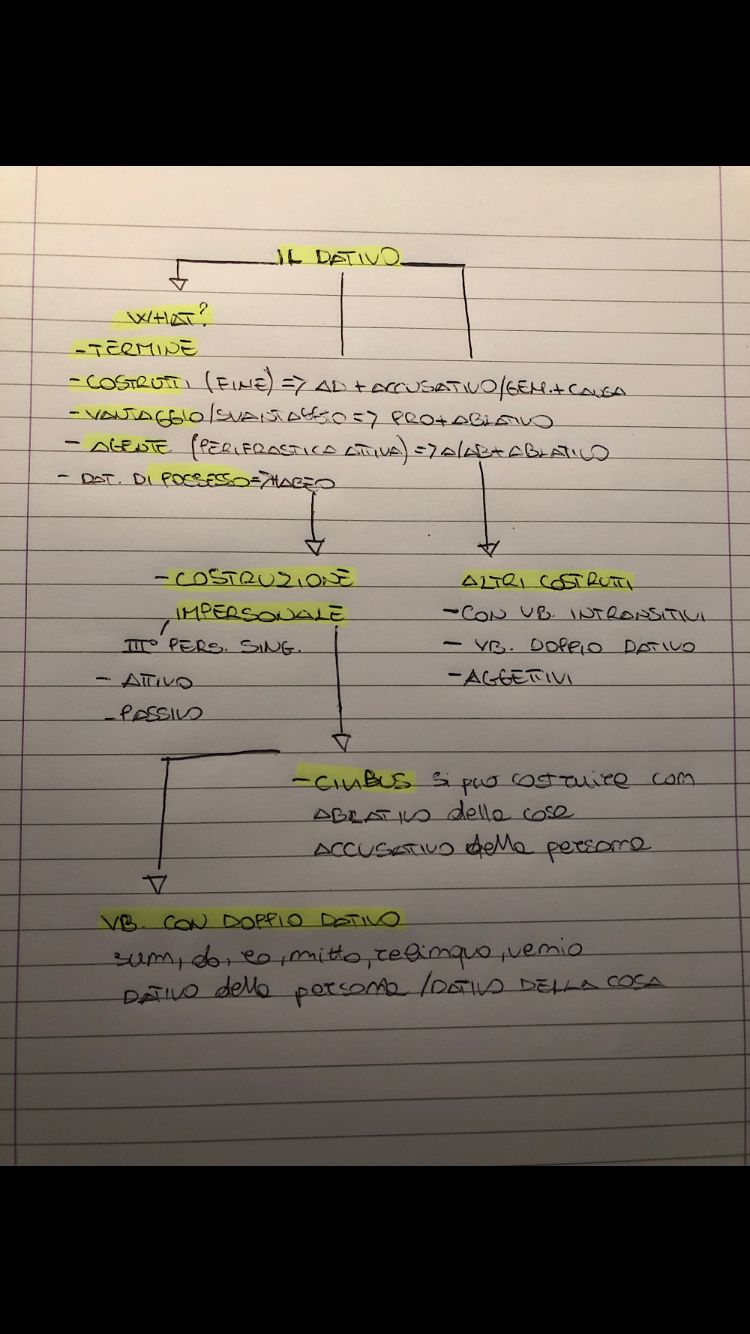 IL DATIVO
WHAT?
-TERMINE
-COSTRUTTI (FINE) => AD + ACCUSATIVO/GEN.+CAUSA
-VANTAGGIO/SVANTAGGIO => PRO+ABLATIVO
- AGENTE (PERIFRASTICA ATTIVA) => A/AB+ABLATIVO
- DAT. DI POSSESSO=>HABEO
-COSTRUZIONE
IMPERSONALE
IIIº PERS. SING.
- ATTIVO
-PASSIVO
ALTRI COSTRUTTI
-CON VB. INTRANSITIVI
- VB. DOPPIO DATIVO
-AGGETTIVI
si può costruire con
ABLATIVO della cosa
ACCUSATIVO della persona
VB. CON DOPPIO DATIVO
sum, do, eo, mitto, relinquo, venio
DATIVO della persona /DATIVO DELLA COSA